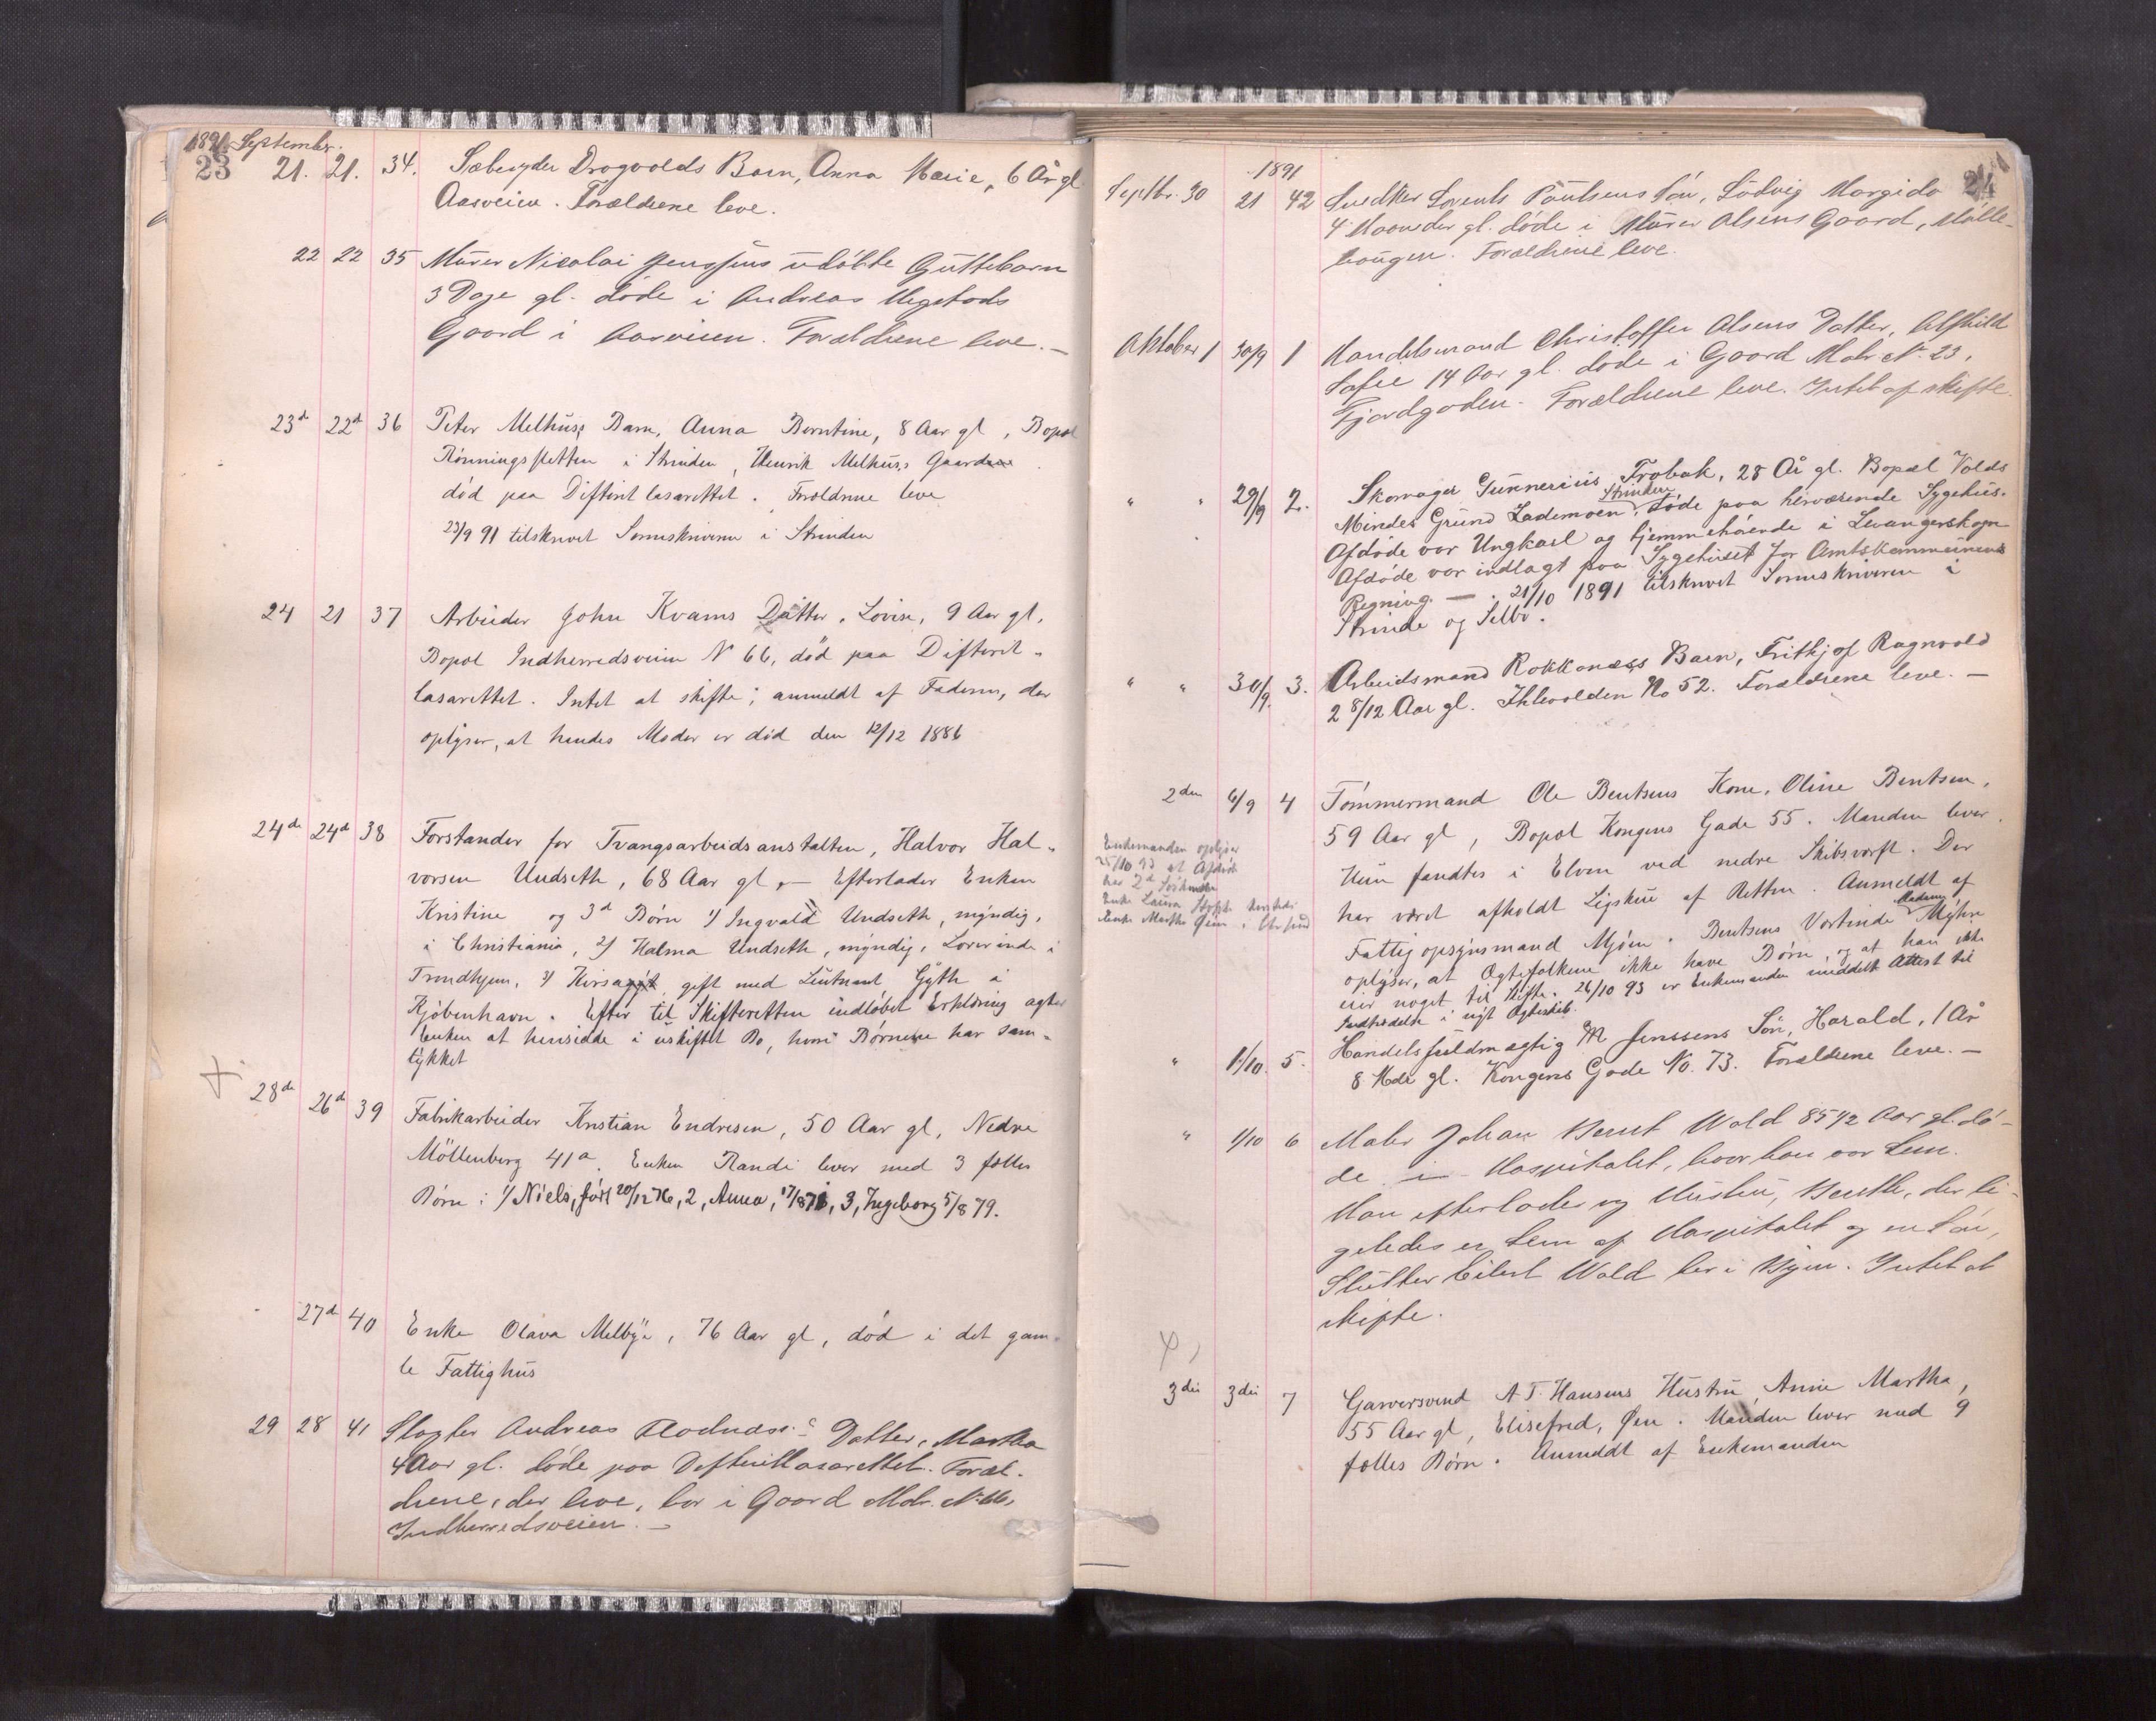 1891. September.
23
21. 21. 34. Sæbesyder Dragvolds Barn, Anna Marie, 6 År gl.
Aasveien. Forældrene leve.
22 22 35 Murer Nicolai Jenssens udøbte Guttebarn
3 Dage gl. døde i Andreas Megstads
Gaard i Aasveien. Forældrene leve. —
23d 22d 36 Peter Melhus's Barn, Anna Berntine, 8 Aar gl, Bopæl
Rønningsletten i Strinden, Henrik Melhus's Gaard
død paa Difteritlasarettet. Forældrene leve
23/9 91 tilskrevet Sorenskriveren i Strinden
24 21 37 Arbeider John Kvams Datter, Lovise, 9 Aar gl,
Bopæl Indherredsveien N 66, død paa Difterit-
lasarettet. Intet at skifte; anmeldt af Faderen, der
oplyser, at hendes Moder er død den 12/12 1886
24de 24de 38 Forstander for Tvangsarbeidsanstalten, Halvor Hal-
vorsen Undseth, 68 Aar gl, — Efterlader Enken
Kristine og 3de Børn 1) Ingvald Undseth, myndig,
i Christiania, 2) Halma Undseth, myndig, Lærerinde i
Trondhjem, 3) Kirsa, gift med Lieutnant Gyth i
Kjøbenhavn. Efter til Skifteretten indløbet Erklæring agter
Enken at hensidde i uskiftet Bo, hvori Børnene har sam-
tykket
28de 26de 39 Fabrikarbeider Kristian Endresen, 50 Aar gl, Nedre
Möllenberg 41a. Enken Randi lever med 3 fælles
Børn: 1) Niels, født 20/12 76, 2, Anna, 17/8 78, 3, Ingeborg 5/8 79.
27de 40 Enke Olava Melbye, 76 Aar gl, død i det gam-
le Fattighus
29 28 41 Slagter Andreas Datter, Martha
4 Aar gl. døde paa Difteritlasarettet. Foræl-
drene, der leve, bor i Gaard Matr. No 66,
Indherredsveien. —
1891
24
Septbr. 30 21 42 Snedker Lorents Paulsens Søn, Ludvig Margido
4 Maaneder gl. døde i Murer Olsens Gaard, Mølle-
baugen. Forældrene leve.
Oktober 1 30/9 1 Handelsmand Christoffer Olsens Datter, Alfhild
Sofie 14 Aar gl. døde i Gaard Matr. No 23,
Fjordgaden. Forældrene leve. Intet at skifte.
" " 29/9 2. Skomager Gunnerius Trøbak, 28 År gl. Bopæl Volds
Mindes Grund Lademoen, Strinden døde paa herværende Sygehus.
Afdøde var Ungkarl og hjemmehørende i Levangerskogn
Afdøde var indlagt paa Sygehuset for Amtskommunens
Regning. — . 21/10 1891 tilskrevet Sorenskriveren i
Strinde og Selbu.
" " 30/9. 3. Arbeidsmand Rokkonæs's Barn, Frithjof Ragnvald
2 8/12 Aar gl. Ihlevolden No 52. Forældrene leve. —
2den 6/9 4 Tømmermand Ole Bentsens Kone, Oline Bentsen,
59 Aar gl, Bopæl Kongens Gade 55. Manden lever.
Hun fandtes i Elven ved nedre Skibsværft. Der
har været afholdt Ligskue af Retten. Anmeldt af
Fattigopsynsmand Mjøen. Bentsens Værtinde Madam Myhre
oplyser, at Ægtefolkene ikke have Børn, og at han ikke
eier noget til Skifte. 26/10 93 er Enkemanden meddelt Attest til
Indtrædelse i nyt Ægteskab.
Enkemanden oplyser
25/10 93 at Afdøde
har 2de
Enke Laura
Enke Marthe
" 1/10. 5. Handelsfuldmægtig M Jenssens Søn, Harald, 1 År
8 Mdr gl. Kongens Gade No. 73. Forældrene leve. —
" 1/10 6 Maler Johan Bernt Wold 85 1/2 Aar gl. dø-
de i Hospitalet, hvor han var Lem.
Han efterlader sig Hustru, Berethe, der li-
geledes er Lem af Hospitalet og en Søn,
Slutter Eilert Wold her i Byen. Intet at
skifte.
3die 3die 7 Garversvend A. T. Hansens Hustru Anne Martha,
55 Aar gl, Elisefred, Øen. Manden lever med 9
fælles Børn. Anmeldt af Enkemanden